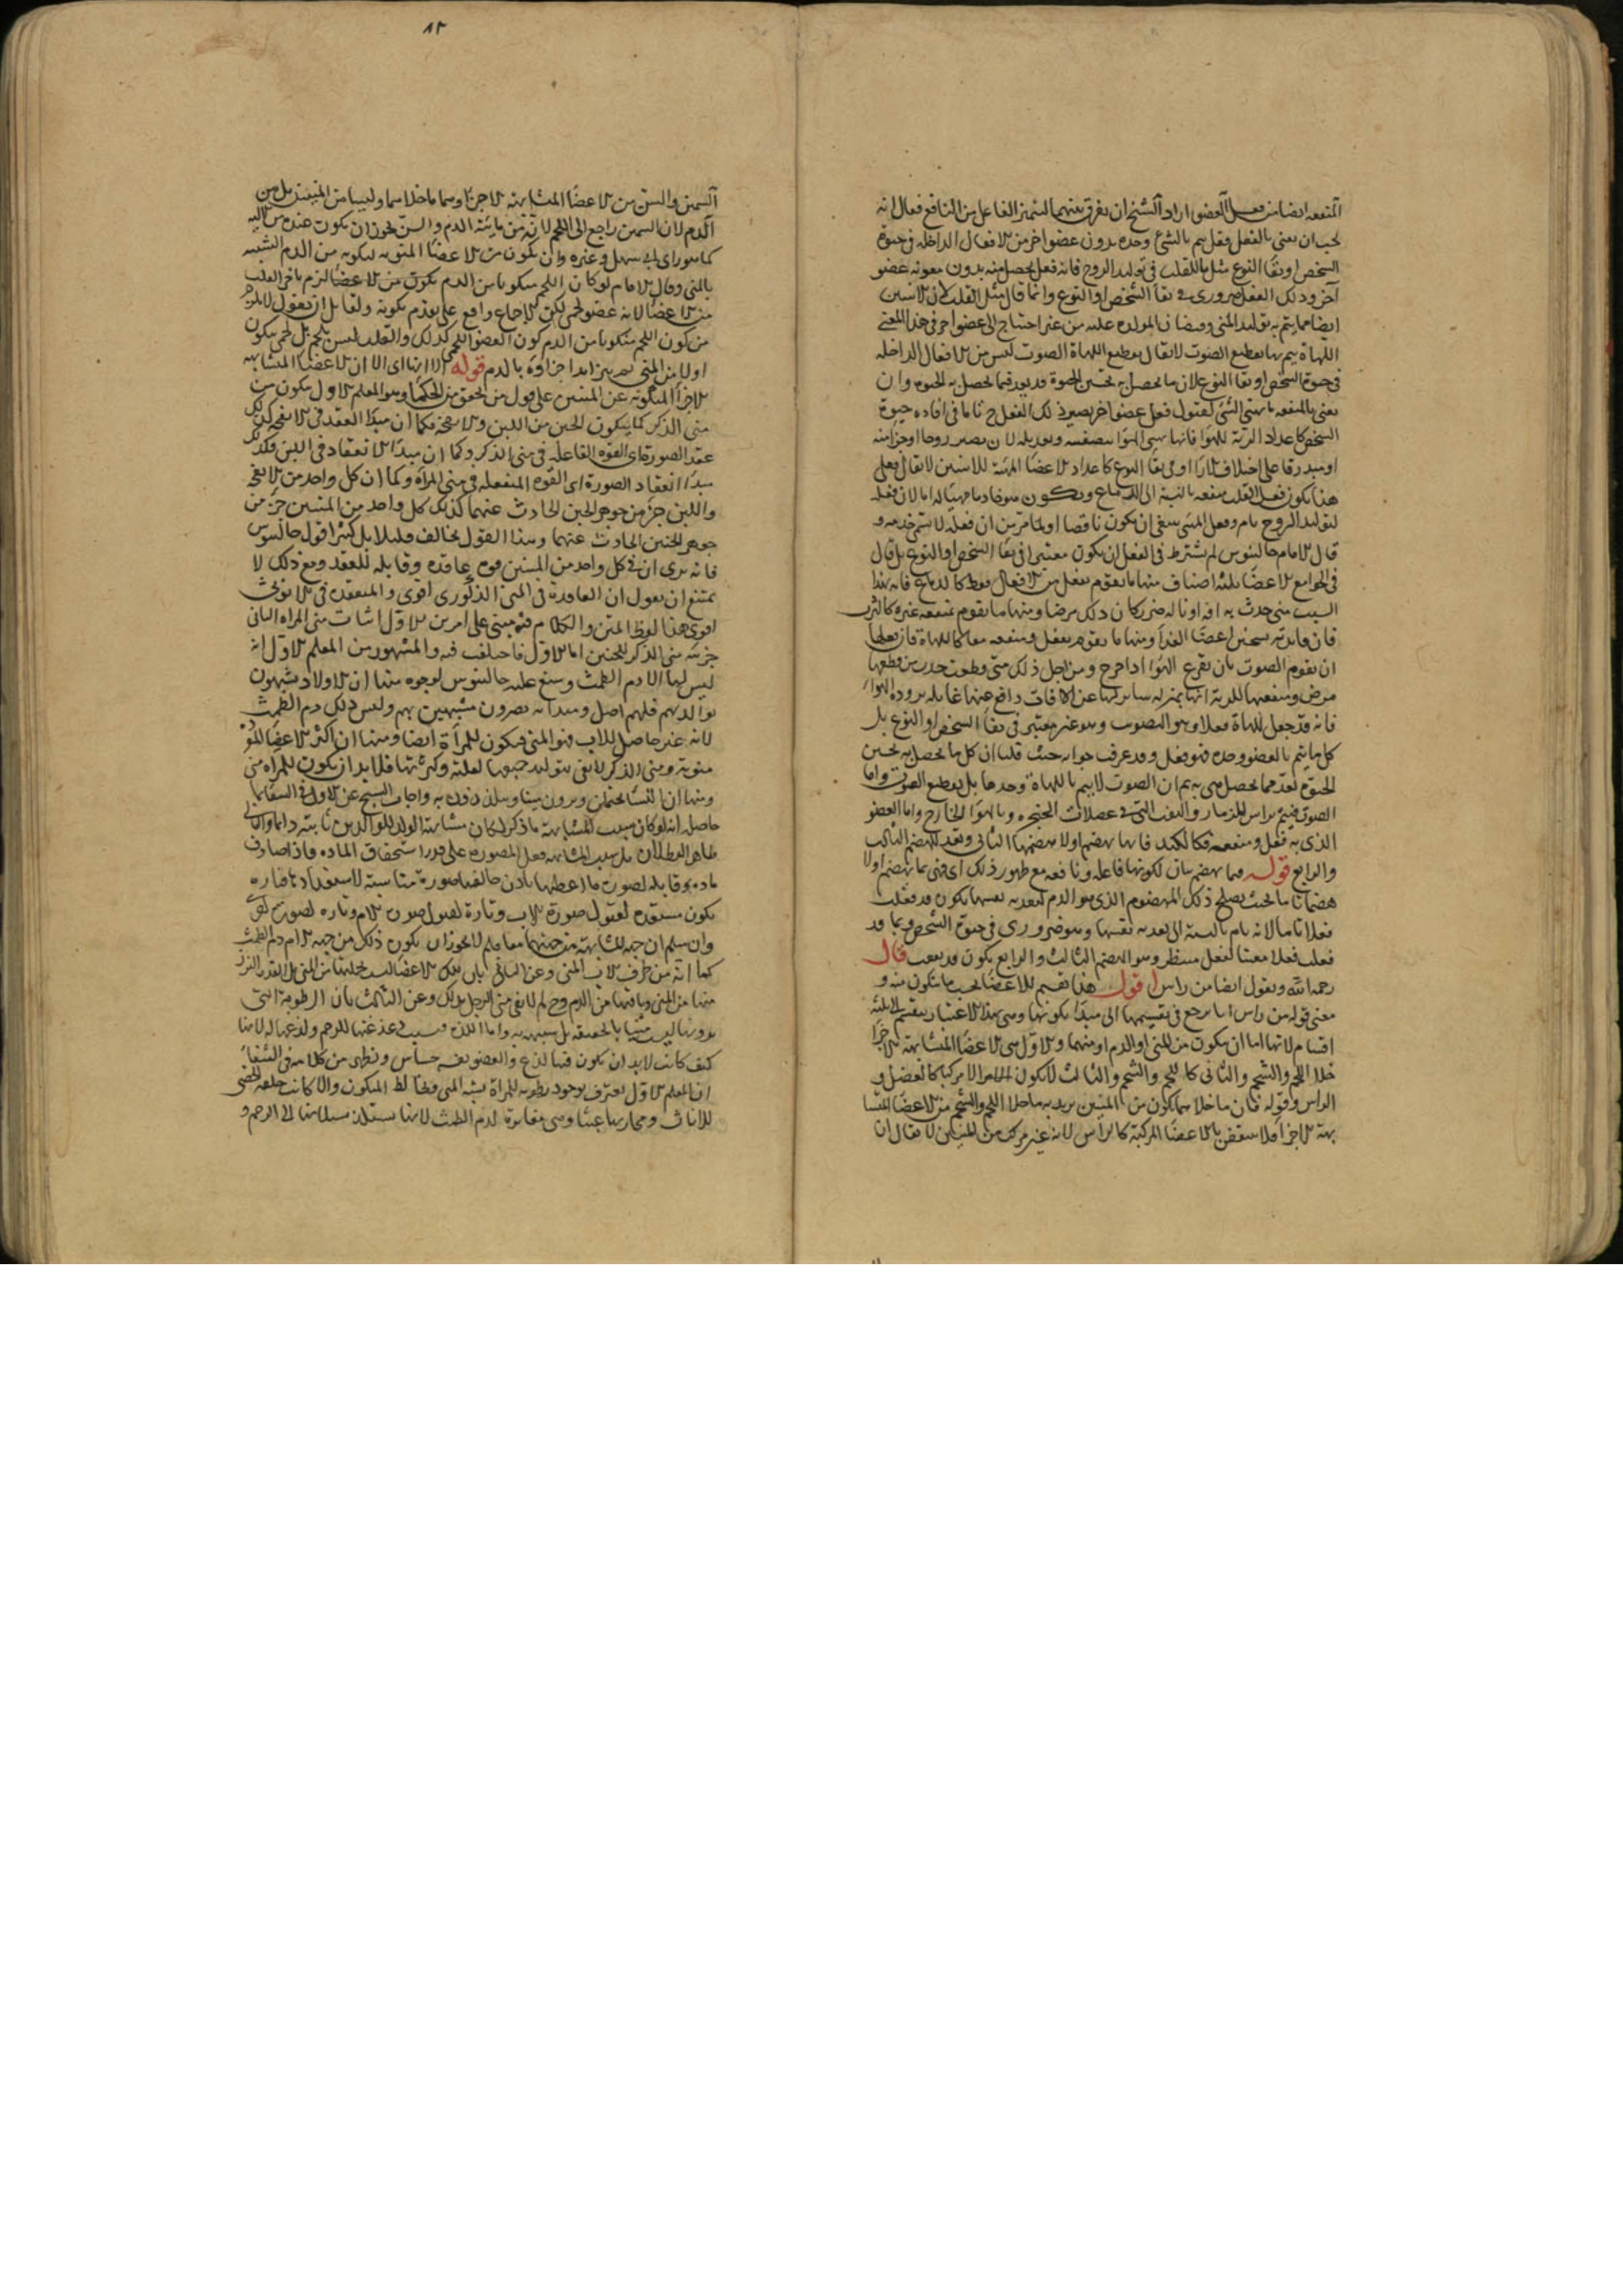 المنفعه ايضا من فعل العضو اراد الشيخ ان يفرق بينهما ليتميز الفاعل من النافع فقال انه
يجب ان يعنى بالفعل فعل يتم بالشئ وحده بدون عضو اخر من الافعال الداخله فى حيوة
الشخص او بقا النوع مثل ما للقلب فى توليد الروح فانه فعل يحصل منه بدون معونه عضو
آخر وذلك الفعل ضرورى فى بقا الشخص او النوع وانما قال مثل القلب لان الانثيين
ايضا مما يتم به توليد المنى وفيضان المولده عليه من غير احتياج الى عضو اخر فى هذا المعنى
اللهاة يتم بها تقطيع الصوت لا يقال تقطيع اللهاة الصوت ليس من الافعال الداخله
فى حيوة الشخص او بقا النوع لان ما يحصل به تحسين الحيوة قد يورد فيما يحصل به الحيوة وان
يعنى بالمنفعه ما يهيئ الشئ لقبول فعل عضو اخر يصير ذلك الفعل ح تاما فى افاده حيوة
الشخص كاعداد الرية للهوا فانها يهيئ الهوا بتصفيته وتعديله لان يصير روحا او جزا منه
او مبدرقا على اختلاف الارا او فى بقا النوع كاعداد الاعضا المهيئة للانثيين لا يقال فعلى
هذا يكون فعل القلب منفعه بالنسبة الى الدماغ ويكون هو خادما مهيئا له اما لان فعله
لتوليد الروح تام وفعل المهيئ ينبغى ان يكون ناقصا او لما مر من ان فعله لا يسمى خدمه و
قال الامام جالينوس لم يشترط فى الفعل ان يكون معتبرا فى بقا الشخص او النوع بل قال
فى الجوامع الاعضا ثلثه اصناف منها ما يقوم بفعل من الافعال فقط كالدماغ فانه بهذا
السبب متى حدث به افه او ناله ضرر كان ذلك مرضا ومنها ما يقوم بمنفعه غيره كالثرب
فان فايدته تسخين اعضا الغذا ومنها ما يقوم بفعل ومنفعه معا كاللهاة فان فعلها
ان يقوم الصوت بان يقرع الهوا اذا خرج ومن اجل ذلك متى قطعت حدث من قطعها
مرض ومنفعتها للرية انها بمنزله ساتر لها عن الافات دافع عنها غايله برودة الهوا
فانه قد جعل للهاة فعلا وهو التصويت وهو غير معتبر فى بقا الشخص او النوع بل
كل ما يتم بالعضو وحده فهو فعل وقد عرفت جوابه حيث قلنا ان كل ما يحصل به تحسين
الحيوة يعد مما يحصل هى به ثم ان الصوت لا يتم باللهاة وحدها بل تقطيع الصوت واما
الصوت فيتم براس المزمار والقوة التى فى عضلات الحنجره وبالهوا الخارج واما العضو
الذى به فعل ومنفعه فكالكبد فانها تهضم اولا هضمها الثانى وتعد للهضم الثالث
والرابع قوله فيما تهضم بيان لكونها فاعله ونافعه مع ظهور ذلك اى فهى بما تهضم اولا
هضما تاما بحيث يصلح ذلك المهضوم الذى هو الدم لتغذيه نفسها يكون قد فعلت
فعلا تاما لانه تام بالنسبة الى تغديه نفسها وهو ضرورى فى حيوة الشخص وبما قد
فعلت فعلا معينا لفعل منتظر وهو الهضم الثالث والرابع يكون قد نفعت قال
رحمه الله ونقول ايضا من راس اقول هذا تقسيم للاعضا بحسب ما يتكون منه و
معنى قوله من راس انا نرجع فى تقسيمها الى مبدا تكونها وهى بهذا الاعتبار ينقسم الى ثلثه
اقسام لانها اما ان يتكون من المنى او الدم او منهما والاول هى الاعضا المتشابهة الاجزا
خلا اللحم والشحم والثانى كاللحم والشحم والثالث لا يكون الا مركبا كالعضل و
الراس وقوله فان ما خلا هما يتكون من المنيين يريد به ما خلا اللحم والشحم من الاعضا المتشا
بهة الاجزا فلا ينتقض بالاعضا المركبة كالراس لانه غير مركب من المنيين لا يقال ان
١٢
السمين والسن من الاعضا المتشابهة الاجزا وهما ما خلا هما وليسا من المنيين بل من
الدم لان السمين راجع الى اللحم لانه من مائية الدم والسن يجوز ان يكون عنده من المنى
كما هو راى ابى سهل وغيره وان يكون من الاعضا المنويه لتكونه من الدم الشبيه
بالمنى وقال الامام لو كان اللحم متكونا من الدم لكون من الاعضا لزم تاخر القلب
من الاعضا لانه عضو لحمى لكن الاجماع واقع على تقدم تكونه ولقائل ان يقول لا يلزم
من كون اللحم متكونا من الدم كون العضو اللحمى كذلك والقلب ليس بلحم بل لحمى يتكون
اولا من المنى ثم يتزايد اجزاؤه بالدم قوله الا انها اى الا ان الاعضا المتشابهه
الاجزا المتكونه عن المنيين على قول من تحقق من الحكما وهو المعلم الاول يتكون من
منى الذكر كما يتكون الجبن من اللبن والانفحه فكما ان مبدا العقد فى الانفحه كذلك
عقد الصورة اى القوه الفاعله فى منى الذكر وكما ان مبدا الانعقاد فى اللبن فكذلك
مبدا انعقاد الصورة اى القوه المنفعله فى منى المراه وكما ان كل واحد من الانفحه
واللبن جز من جوهر الجبن الحادث عنهما كذلك كل واحد من المنيين جز من
جوهر الجنين الحادث عنهما وهذا القول يخالف قليلا بل كثيرا قول جالينوس
فانه يرى ان فى كل واحد من المنيين قوه عاقده وقابله للعقد ومع ذلك لا
يمتنع ان يقول ان العاقدة فى المنى الذكورى اقوى والمنعقده فى الانوثى
اقوى هذا لفظ المتن والكلام فيه مبنى على امرين الاول اثبات منى المراه الثانى
جزئية منى الذكر للجنين اما الاول فاختلف فيه والمشهور من المعلم الاول انه
ليس لها الا دم الطمث وشنع عليه جالينوس لوجوه منها ان الاولاد يشبهون
بوالديهم فلهم اصل ومبدا به يصيرون مشبهين بهم وليس ذلك دم الطمث
لانه غير حاصل للاب فهو المنى فيكون للمرأة ايضا ومنها ان اكثر الاعضا
منويه ومنى الذكر لا يفى بتوليد جميعها لقلته وكثرتها فلا بد ان يكون للمراه منى
ومنها ان النسا يحتلمن ويرون منيا ويلتذذن به واجاب الشيخ عن الاول فى الشفا بما
حاصله انه لو كان سبب المشابهة ما ذكر لكان مشابهة الولد للوالدين ثابتة دائما والتالى
ظاهر البطلان بل سبب المشابهه فعل المصوره على قدر استحقاق الماده فاذا صادف
ماده قابله لصورة ما اعطتها باذن خالقها صورة مناسبة لاستعدادها فتاره
يكون مستعده لقبول صورة الاب وتارة لقبول صورة الام وتاره لصورة اخرى
وان سلم ان جهة المشابهة من جهتهما معا فلم لا يجوز ان يكون ذلك من جهه الام دم الطمث
كما انه من طرف الاب المنى وعن الثانى بان تلك الاعضا ليست خلقتها من المنى بل القدر النزر
منها من المنى وباقيها من الدم وح لم لا يفى منى الرجل بذلك وعن الثالث بان الرطوبة التى
يرونها ليست منيا بالحقيقه بل شبيهه به واما اللذه فسببها دغدغتها للرحم ولذعها له لانها
كيف كانت لا بد ان يكون فيها لذع والعضو نفسه حساس ويظهر من كلامه فى الشفا
ان المعلم الاول يعترف بوجود رطوبه للمراة يشبه المنى ويخالط المتكون والا كانت خلقه الخصى
للاناث ومجاريها عبثا وهى مغايرة لدم الطمث لانها يستلذ بسيلانها الى الرحم و